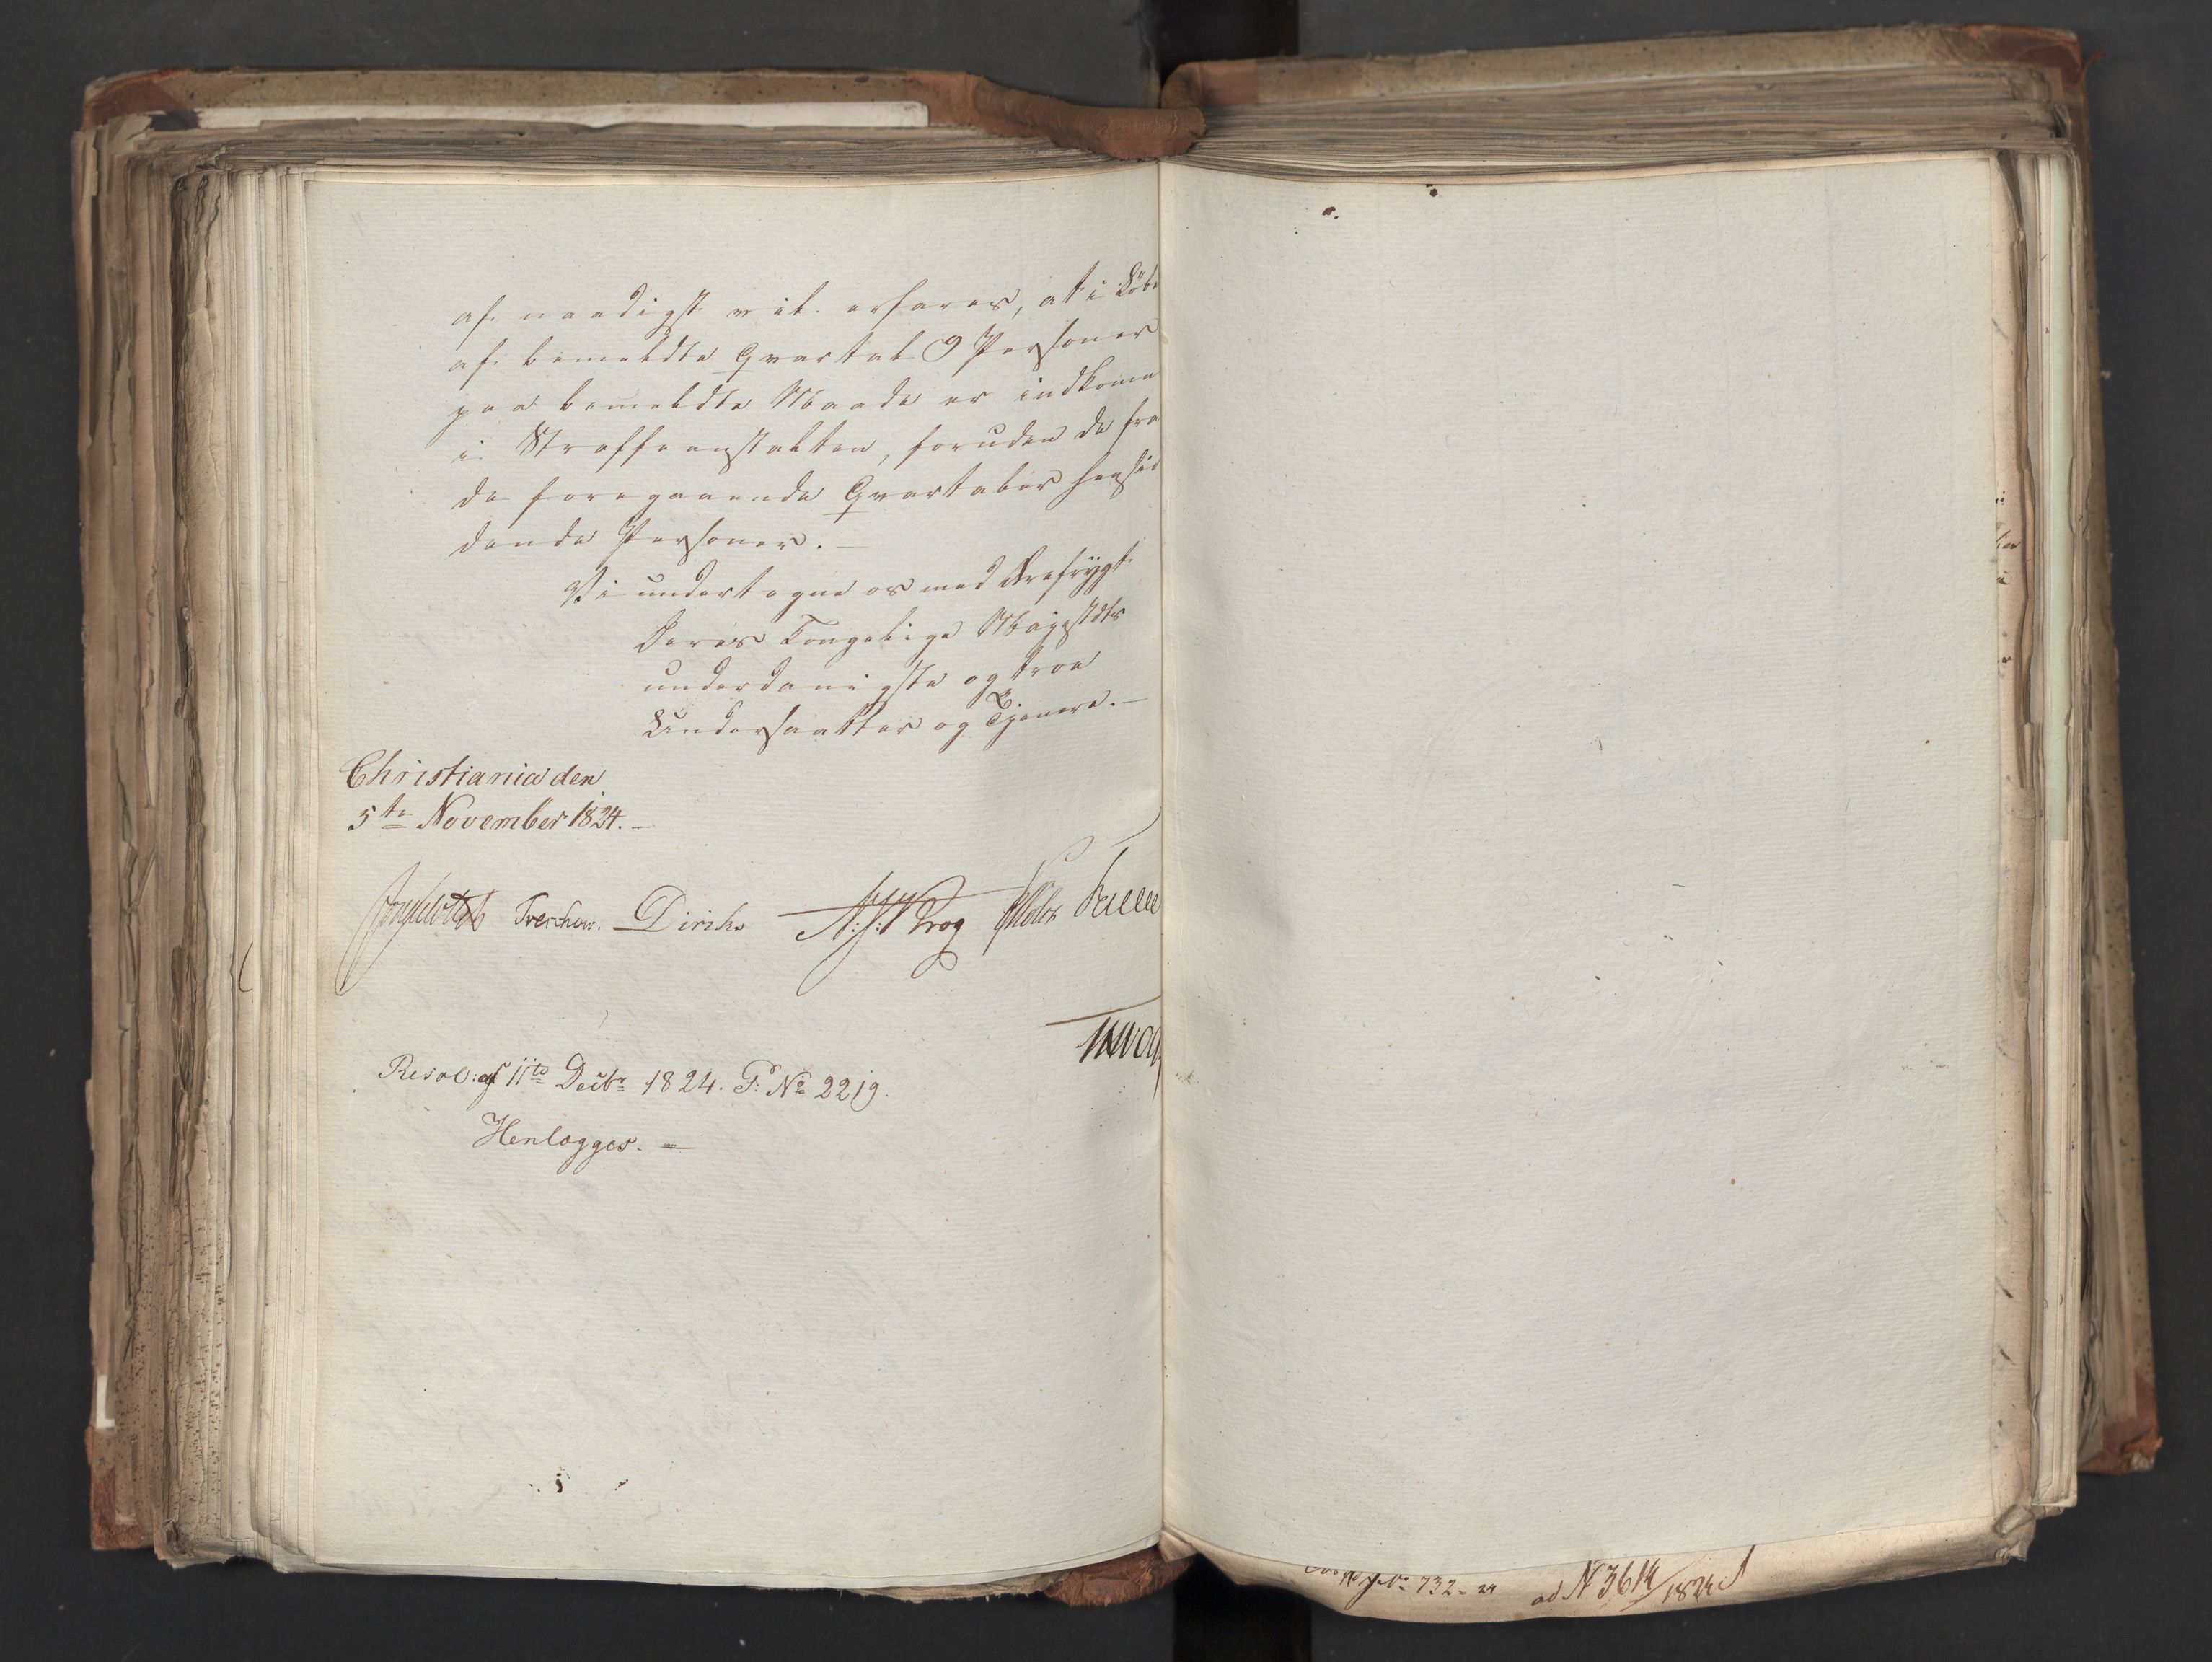 af naadigst vil erfares, at i Löbe
af bemeldte Qvartal 9 Personer
paa bemeldte Maade er indkomne
i Straffeanstalten, foruden de fra
de foregaaende Qvartaler hensid
dende Personer. —
Vi undertegne os med Ærefrygt
Deres Kongelige Majestæts
underdanigste og troe
Undersaatter og Tjenere. —
Christiania den
5te November 1824. —
Treschow. Diriks N:J:Krog
Resol: af 11te Decbr 1824. P: No 2219.
Henlægges. —
No 732-24 ad N 3614/1824